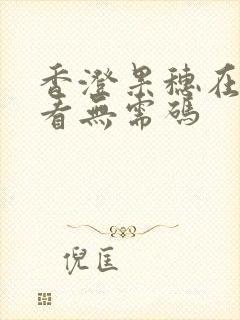 香澄果穗在
者無需碼
倪匡